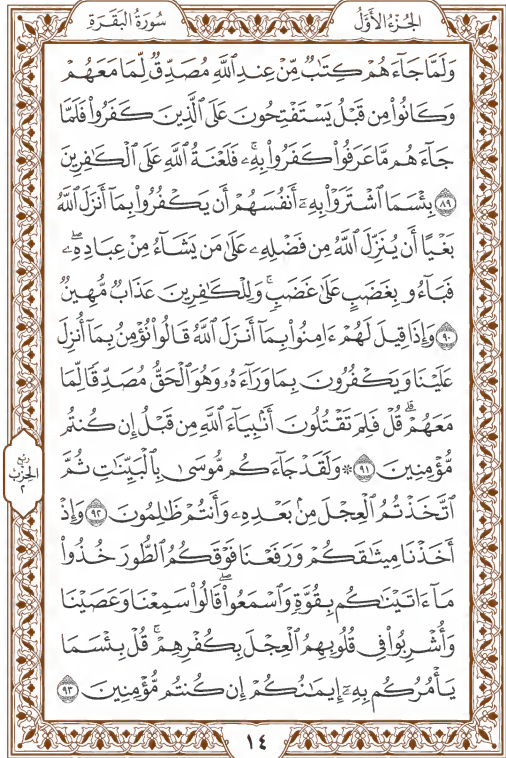 الجُزْءُ الأَوَّلُ
سُورَةُ البَقَرَةِ
وَلَمَّا جَآءَهُمْ كِتَٰبٌ مِّنْ عِندِ ٱللَّهِ مُصَدِّقٌ لِّمَا مَعَهُمْ
وَكَانُوا۟ مِن قَبْلُ يَسْتَفْتِحُونَ عَلَى ٱلَّذِينَ كَفَرُوا۟ فَلَمَّا
جَآءَهُم مَّا عَرَفُوا۟ كَفَرُوا۟ بِهِۦۚ فَلَعْنَةُ ٱللَّهِ عَلَى ٱلْكَٰفِرِينَ
٨٩ بِئْسَمَا ٱشْتَرَوْا۟ بِهِۦٓ أَنفُسَهُمْ أَن يَكْفُرُوا۟ بِمَآ أَنزَلَ ٱللَّهُ
بَغْيًا أَن يُنَزِّلَ ٱللَّهُ مِن فَضْلِهِۦ عَلَىٰ مَن يَشَآءُ مِنْ عِبَادِهِۦۖ
فَبَآءُو بِغَضَبٍ عَلَىٰ غَضَبٍۚ وَلِلْكَٰفِرِينَ عَذَابٌ مُّهِينٌ
٩٠ وَإِذَا قِيلَ لَهُمْ ءَامِنُوا۟ بِمَآ أَنزَلَ ٱللَّهُ قَالُوا۟ نُؤْمِنُ بِمَآ أُنزِلَ
عَلَيْنَا وَيَكْفُرُونَ بِمَا وَرَآءَهُۥ وَهُوَ ٱلْحَقُّ مُصَدِّقًا لِّمَا
مَعَهُمْۗ قُلْ فَلِمَ تَقْتُلُونَ أَنۢبِيَآءَ ٱللَّهِ مِن قَبْلُ إِن كُنتُم
مُّؤْمِنِينَ ٩١ ۞ وَلَقَدْ جَآءَكُم مُّوسَىٰ بِٱلْبَيِّنَٰتِ ثُمَّ
ٱتَّخَذْتُمُ ٱلْعِجْلَ مِنۢ بَعْدِهِۦ وَأَنتُمْ ظَٰلِمُونَ ٩٢ وَإِذْ
أَخَذْنَا مِيثَٰقَكُمْ وَرَفَعْنَا فَوْقَكُمُ ٱلطُّورَ خُذُوا۟
مَآ ءَاتَيْنَٰكُم بِقُوَّةٍ وَٱسْمَعُوا۟ۖ قَالُوا۟ سَمِعْنَا وَعَصَيْنَا
وَأُشْرِبُوا۟ فِى قُلُوبِهِمُ ٱلْعِجْلَ بِكُفْرِهِمْۚ قُلْ بِئْسَمَا
يَأْمُرُكُم بِهِۦٓ إِيمَٰنُكُمْ إِن كُنتُم مُّؤْمِنِينَ ٩٣
ربع
الحِزْبِ
٢
١٤